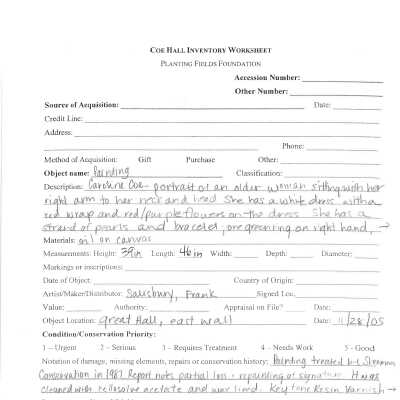 COE HALL INVENTORY WORKSHEET
PLANTING FIELDS FOUNDATION
Accession Number:
Other Number:
Source of Acquisition: Date:
Credit Line:
Address:
Phone:
Method of Acquisition: Gift Purchase Other:
Object name: Painting Classification:
Description: Caroline Coe - portrait of an older woman sitting with her
right arm to her neck and head She has a white dress with a
red wrap and red/purple flowers on the dress. She has a
strand of pearls and bracelet, one green ring on right hand, →
Materials: oil on canvas
Measurements: Height: 39in Length: 46in Width: Depth: Diameter:
Markings or inscriptions:
Date of Object Country of Origin:
Artist/Maker/Distributor: Salisbury, Frank Signed Loc.
Value: Authority: Appraisal on File? Date:
Object Location: Great Hall, east wall Date: 11/28/05
Condition/Conservation Priority:
1 – Urgent 2 – Serious 3 – Requires Treatment 4 – Needs Work 5 - Good
Notation of damage, missing elements, repairs or conservation history: Painting treated
Conservation in 1987. Report notes partial loss - repainting of signature. It was
cleaned with cellosolve acetate and was lined. Keytone Resin Varnish →